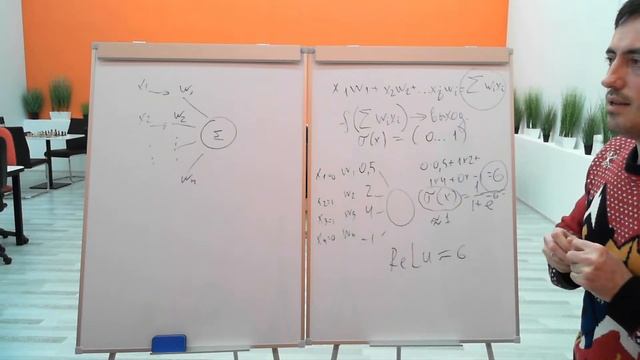 x₁ → w₁
x₂ → w₂
Σ
wₙ
x₁w₁ + x₂w₂ + ... xᵢwᵢ = Σ wᵢxᵢ
f(Σ wᵢxᵢ) → выход
σ(x) = (0...1)
x₁=0 w₁ 0,5
x₂=1 w₂ 2
x₃=1 w₃ 4
x₄=0 w₄ -1
0·0,5 + 1×2 +
1×4 + 0× = 6
σ(x) =
≈ 1
ReLu = 6